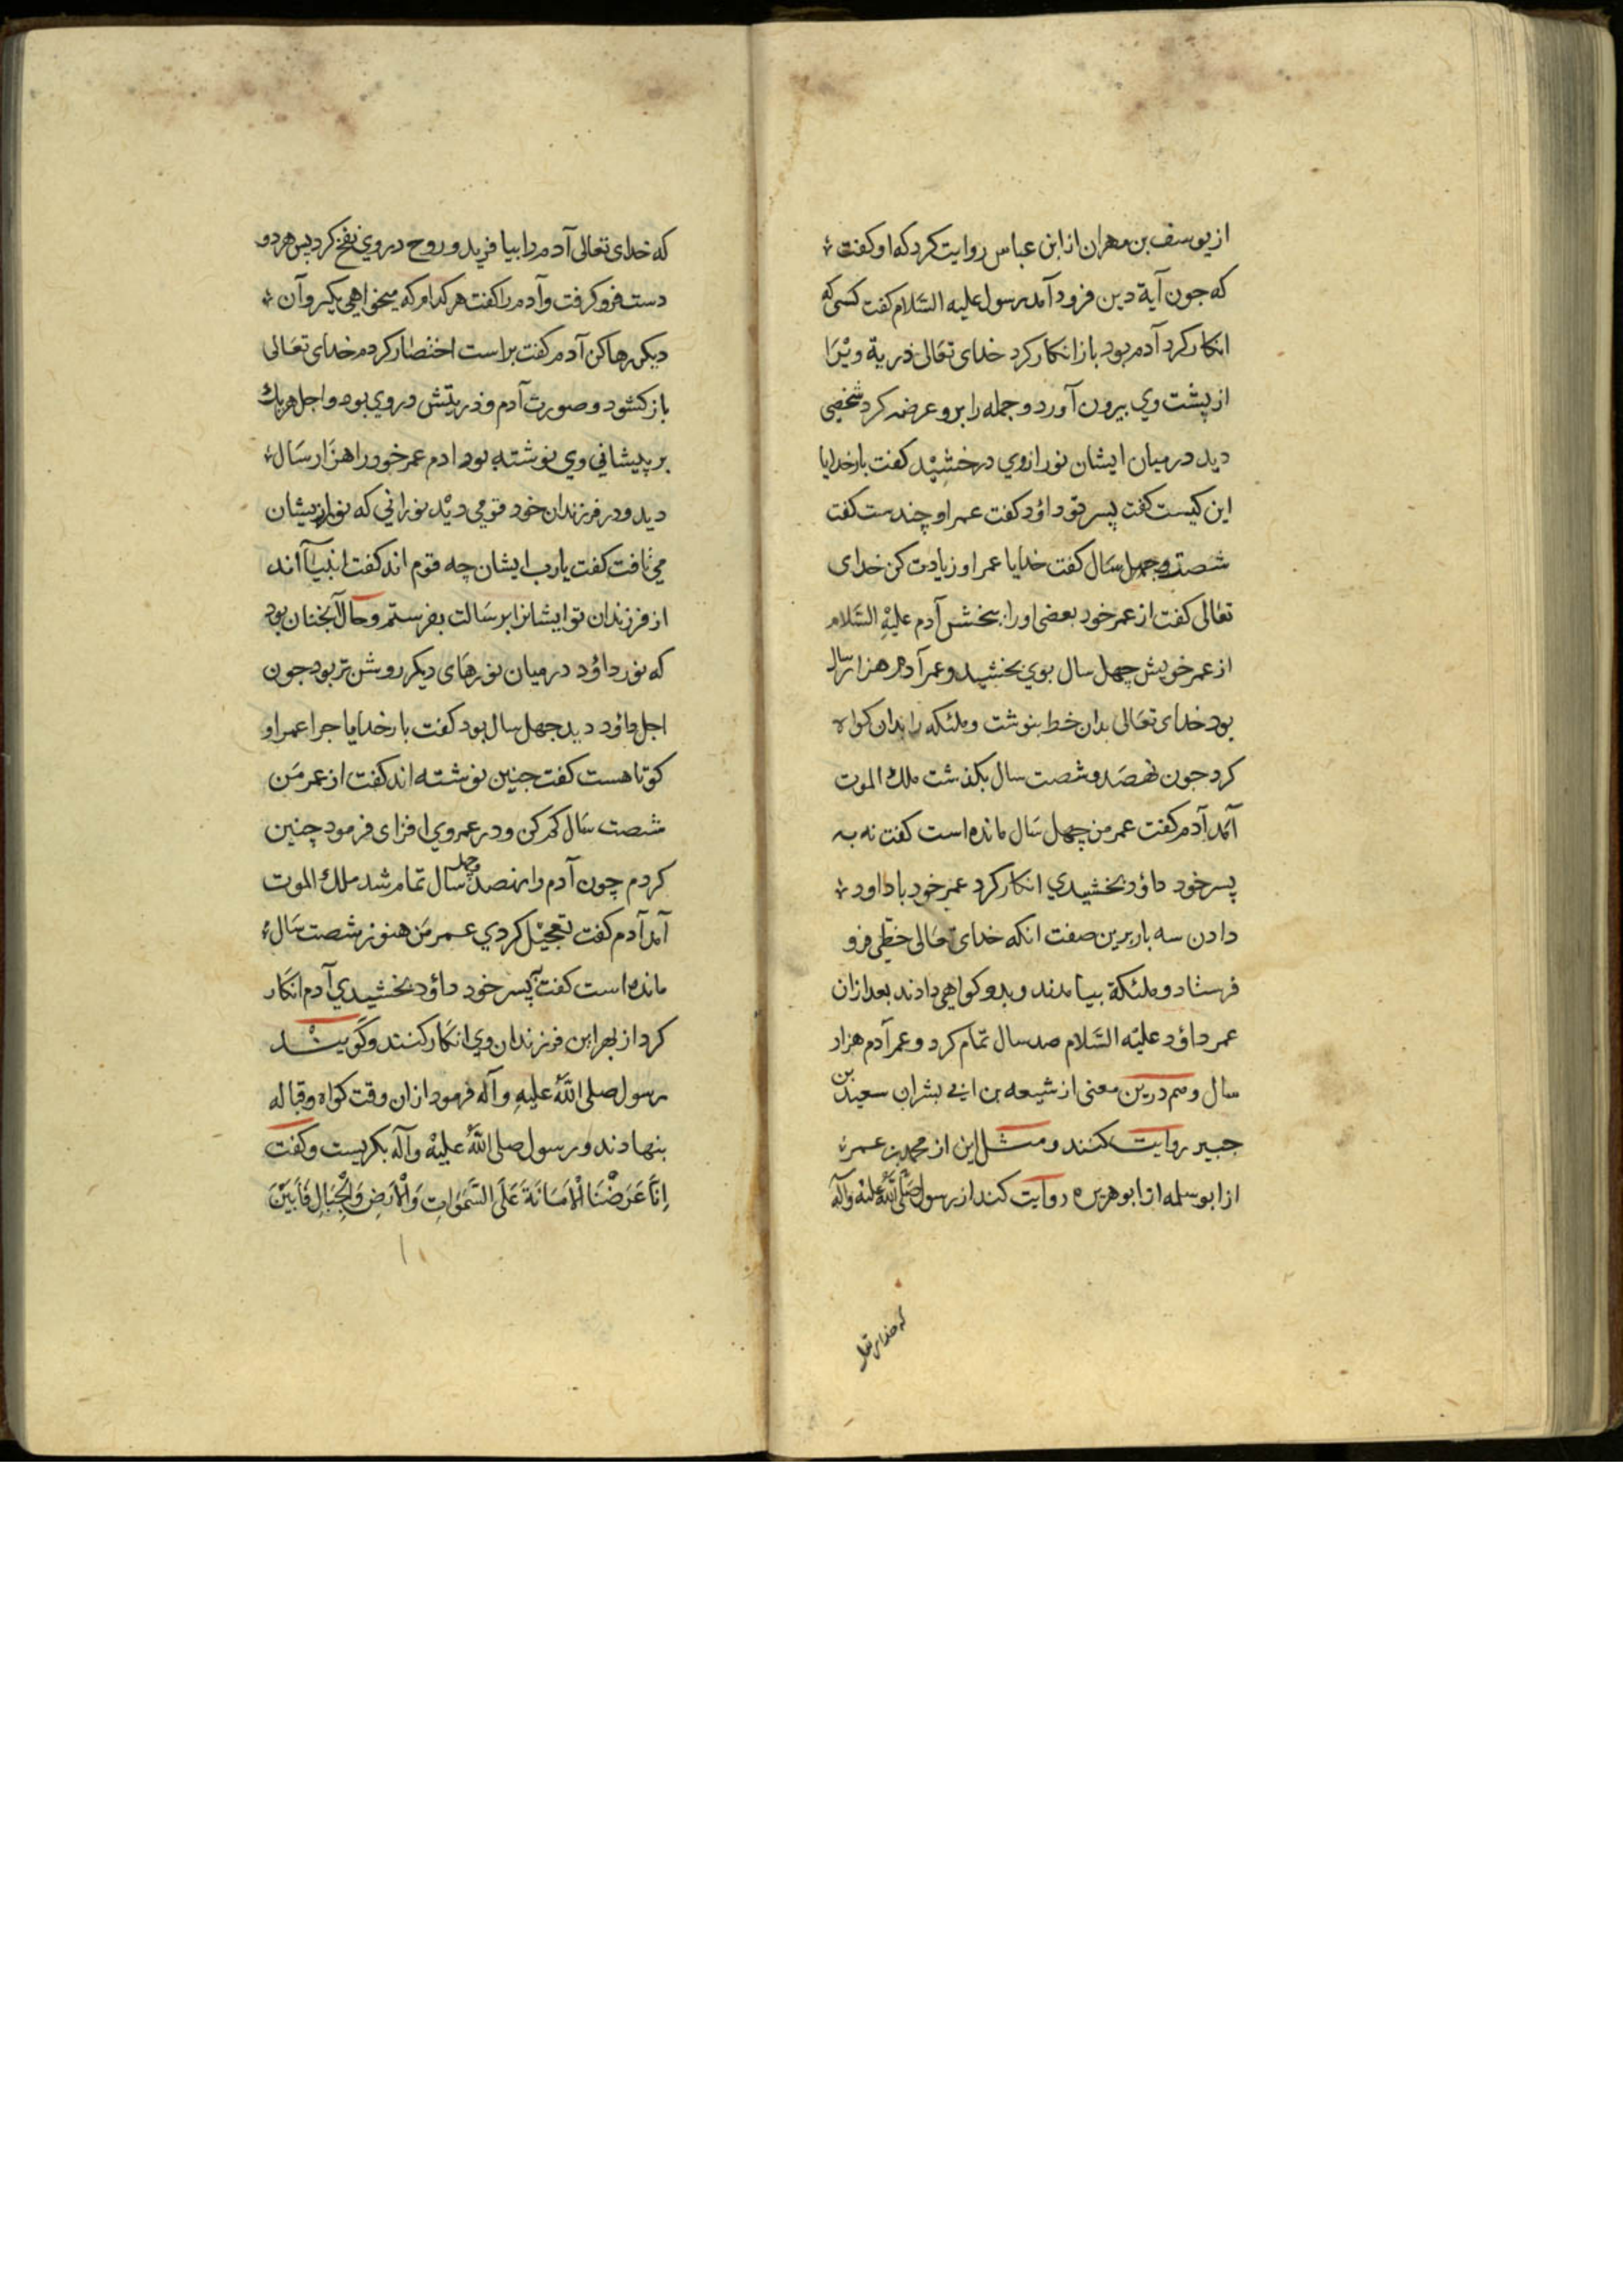 از یوسف بن مهران از ابن عباس روایت کرد که او کفت
که جون آیة دین فرود آمد رسول علیه السّلام کفت کسی که
انکار کرد آدم بود باز انکار کرد خدای تعالی ذریة ویرا
از پشت وي بیرون آورد و جمله را برو عرضه کرد شخصی
دید در میان ایشان نور از وي درخشید کفت بار خدایا
این کیست کفت پسر تو داؤد کفت عمر او چندست کفت
شصت و جهل سال کفت خدایا عمر او زیادت کن خدای
تعالی کفت از عمر خود بعضی او را ببخش آدم علیه السّلام
از عمر خویش چهل سال بوي بخشید و عمر آدم هزار سال
بود خدای تعالی بدان خط بنوشت و ملئکه را بدان کواه
کرد جون نهصد و شصت سال بکذشت ملك الموت
آمد آدم کفت عمر من چهل سال مانده است کفت نه به
پسر خود داؤد بخشیدي انکار کرد عمر خود با داود
دادن سه بار برین صفت انکه خدای تعالی خطی فرو
فرستاد و ملئکة بیامدند و بدو کواهی دادند بعد ازان
عمر داؤد علیه السّلام صد سال تمام کرد و عمر آدم هزار
سال و هم درین معنی از شیعه بن ابی بشر ان سعید بن
جبیر روایت کنند و مثل این از محمد بن عمر
از ابو سلمه از ابو هریره روایت کند از رسول صلّی الله علیه وآله
که خدای تعالی
که خدای تعالی آدم را بیافرید و روح در وي نفخ کرد پس هر دو
دست فرو کرفت و آدم را کفت هر کدام که میخواهی بکیر و آن
دیکر رها کن آدم کفت براست اختصار کردم خدای تعالی
باز کشود و صورت آدم و ذریتش در وي بود و اجل هر یك
بر پیشانی وي نوشته بود ادم عمر خود را هزار سال
دید و در فرزندان خود قومی دید نورانی که نور از یشان
می تافت کفت یارب ایشان چه قوم اند کفت انبیاآند
از فرزندان تو ایشانرا برسالت بفرستم و حال آنجنان بود
که نور داؤد در میان نورهای دیکر روشن تر بود جون
اجل داؤد دید جهل سال بود کفت بار خدایا جرا عمر او
کوتاهست کفت جنین نوشته اند کفت از عمر من
شصت سال کم کن و در عمر وي افزای فرمود چنین
کردم چون آدم را نهصد و چهل سال تمام شد ملك الموت
آمد آدم کفت تعجیل کردي عمر من هنوز شصت سال
مانده است کفت به پسر خود داؤد بخشیدي آدم انکار
کرد از بهر این فرزندان وي انکار کنند و کویند
رسول صلی الله علیه و آله فرمود ازان وقت کواه و قباله
بنهادند و رسول صلی الله علیه وآله بکریست و کفت
اِنّا عَرَضْنَا الْاَمَانَةَ عَلَی السَّمَوَاتِ وَالْاَرْضِ وَالْجِبَالِ فَاَبَیْنَ